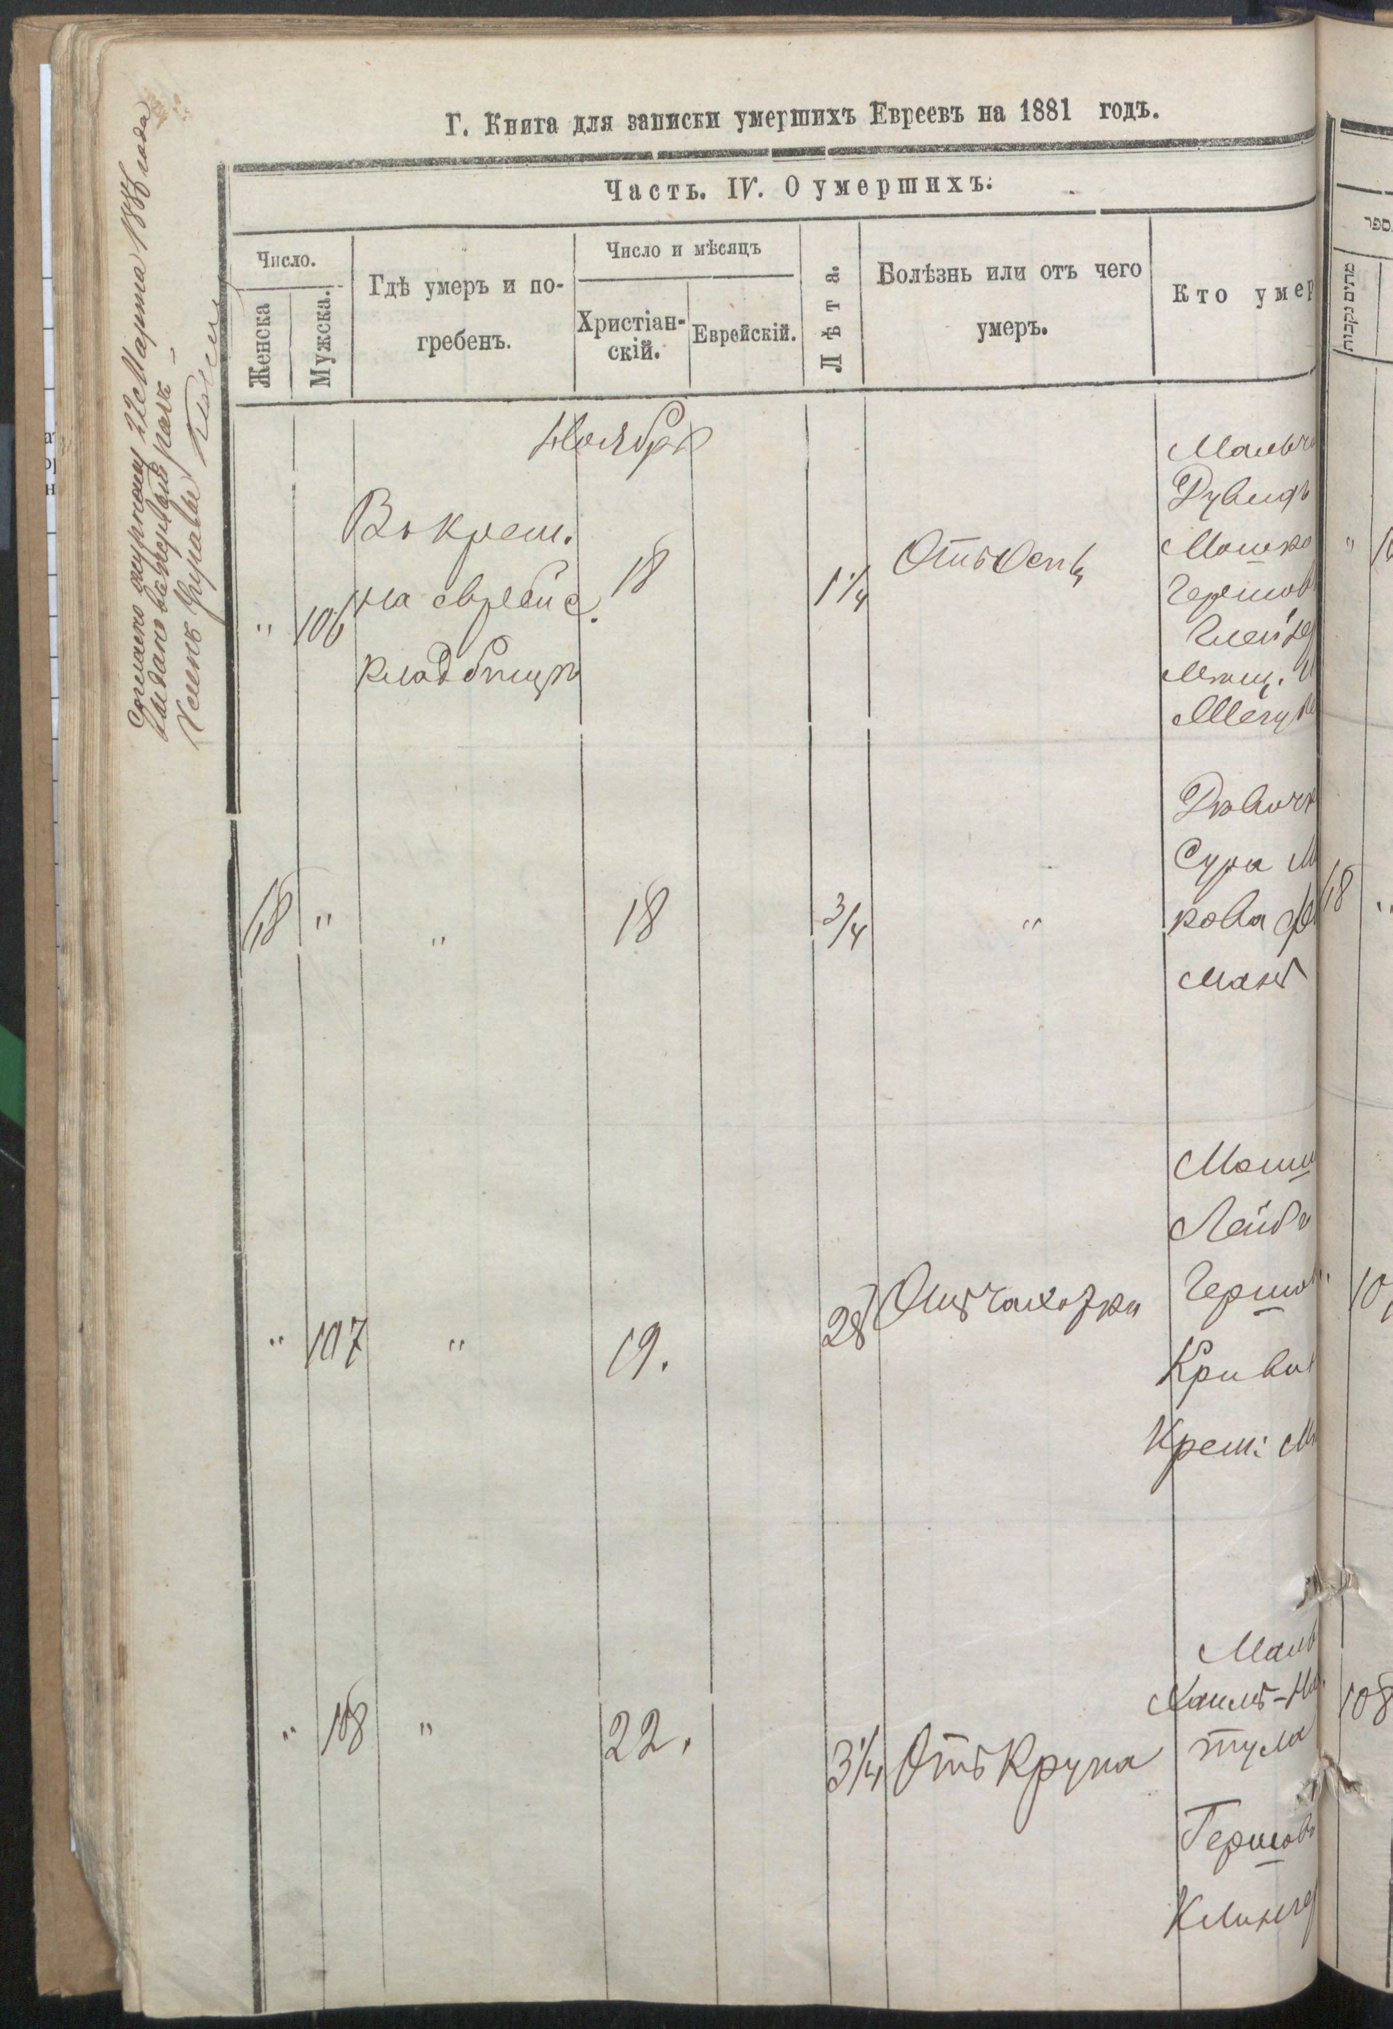 Г. Книга для записки умершихъ Евреевъ на 1881 годъ.
Часть. IV. О умершихъ.
Число.
Женска
Мужска.
Гдѣ умеръ и по-
гребенъ.
Число и мѣсяцъ
Христіан-
скій.
Еврейскій.
Лѣта.
Болѣзнь или отъ чего
умеръ.
Кто умер
Ноября
" 106
Въ Крем.
на еврейс.
кладбищѣ
18
1 1/4
Отъ Оспы
Мальч
Дувидъ
Мошко
Гершов
Мѣщ.
118 " " 18 3/4 "
Дѣвочк
Сура М
кова
манъ
" 107 " 19. 28 Отъ чахотки
Мош
Лейбъ
Гершов
Кривит
Крем: М
" 108 " 22. 3 1/4 Отъ Крупа
Маль
Хаимъ-Н
тула
Гершов
Клингер
22 Марта 188 года
выдано
מתים נקבות
" 10
118 "
" 10
108